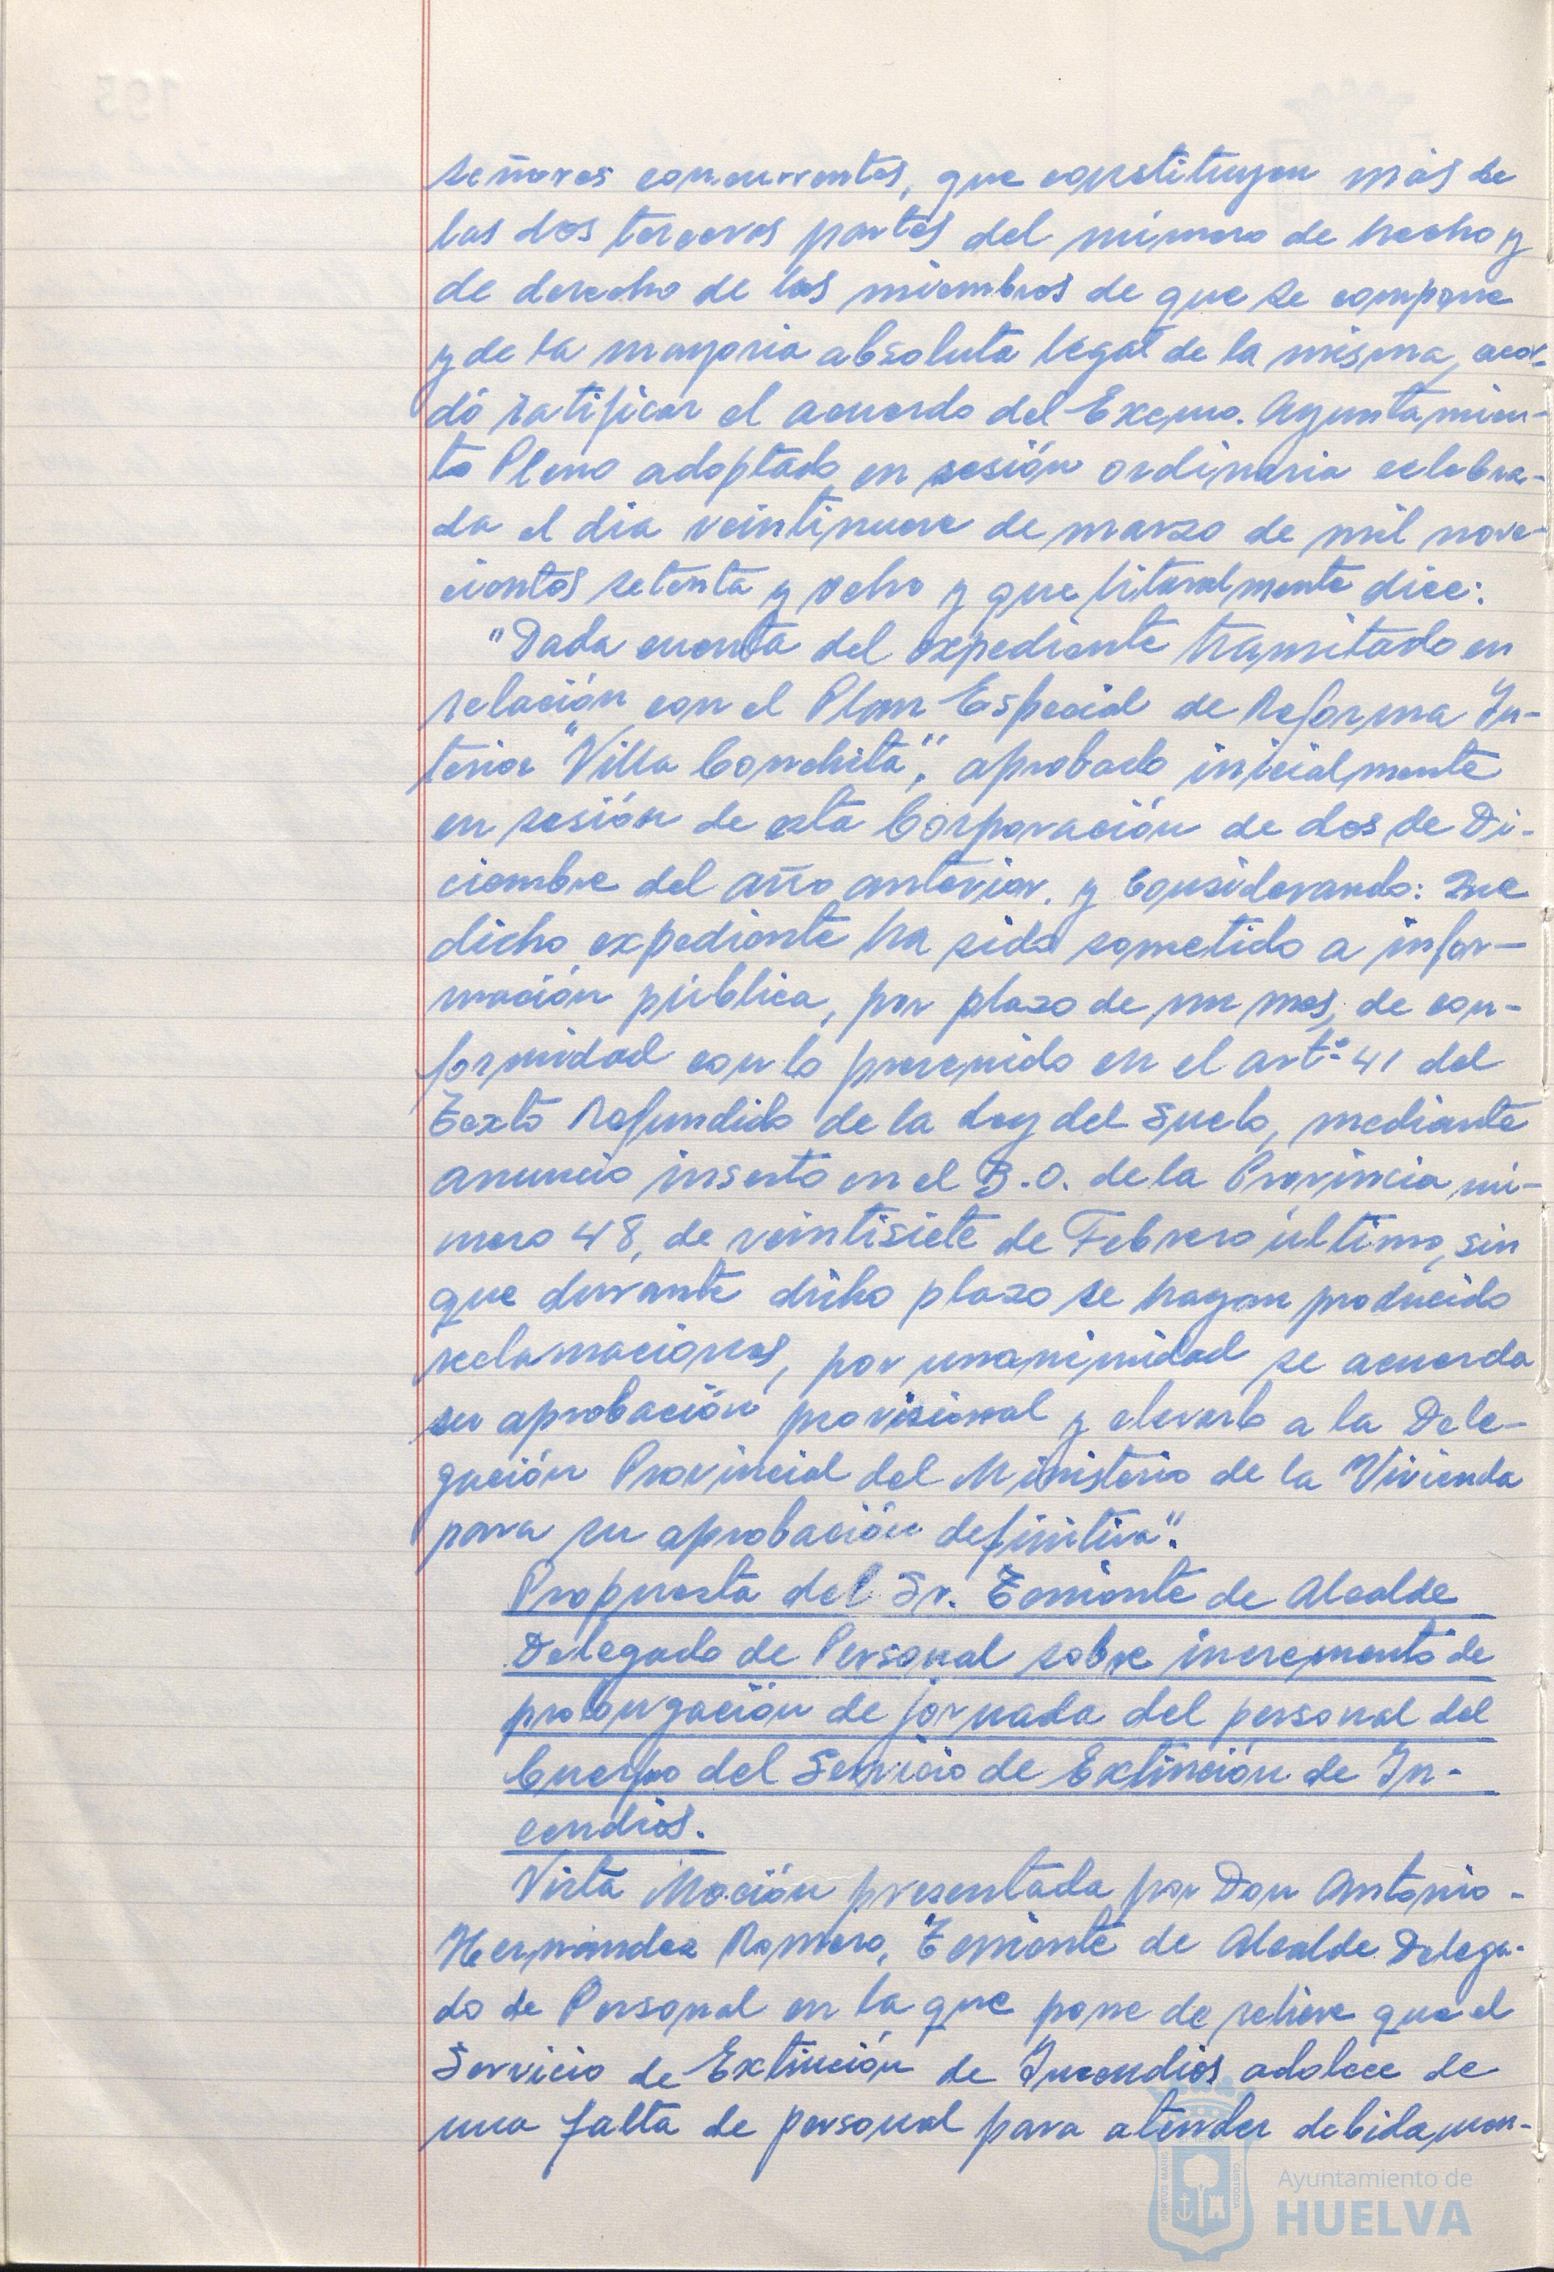 señores concurrentes, que constituyen más de
las dos terceras partes del número de hecho y
de derecho de los miembros de que se compone
y de la mayoria absoluta legal de la misma, acor-
dó ratificar el acuerdo del Excmo. Ayuntamien-
to Pleno adoptado en sesión ordinaria celebra-
da el dia veintinueve de marzo de mil nove-
cientos setenta y ocho y que literalmente dice:
"Dada cuenta del expediente tramitado en
relación con el Plan Especial de Reforma In-
terior "Villa Conchita", aprobado inicialmente
en sesión de esta Corporación de dos de Di-
ciembre del año anterior, y Considerando: Que
dicho expediente ha sido sometido a infor-
mación pública, por plazo de un mes, de con-
formidad con lo prevenido en el artº 41 del
Texto Refundido de la Ley del Suelo, mediante
anuncio inserto en el B.O. de la Provincia nú-
mero 48, de veintisiete de Febrero último, sin
que durante dicho plazo se hayan producido
reclamaciones, por unanimidad se acuerda
su aprobación provisional y elevarlo a la Dele-
gación Provincial del Ministerio de la Vivienda
para su aprobación definitiva".
Propuesta del Sr. Teniente de Alcalde
Delegado de Personal sobre incremento de
prolongación de jornada del personal del
Cuerpo del Servicio de Extinción de In-
cendios.
Vista Moción presentada por Don Antonio -
Hernández Romero, Teniente de Alcalde Delega-
do de Personal en la que pone de relieve que el
Servicio de Extinción de Incendios adolece de
una falta de personal para atender debidamen-
Ayuntamiento de
HUELVA
PORTUS MARIS
CUSTODIA